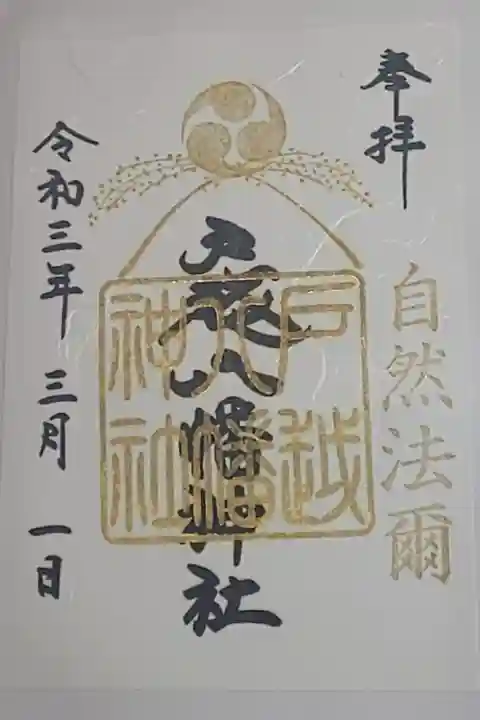 奉拝
自然法爾
戸越八幡神社
戸越
八幡
神社
令和三年 三月 一日